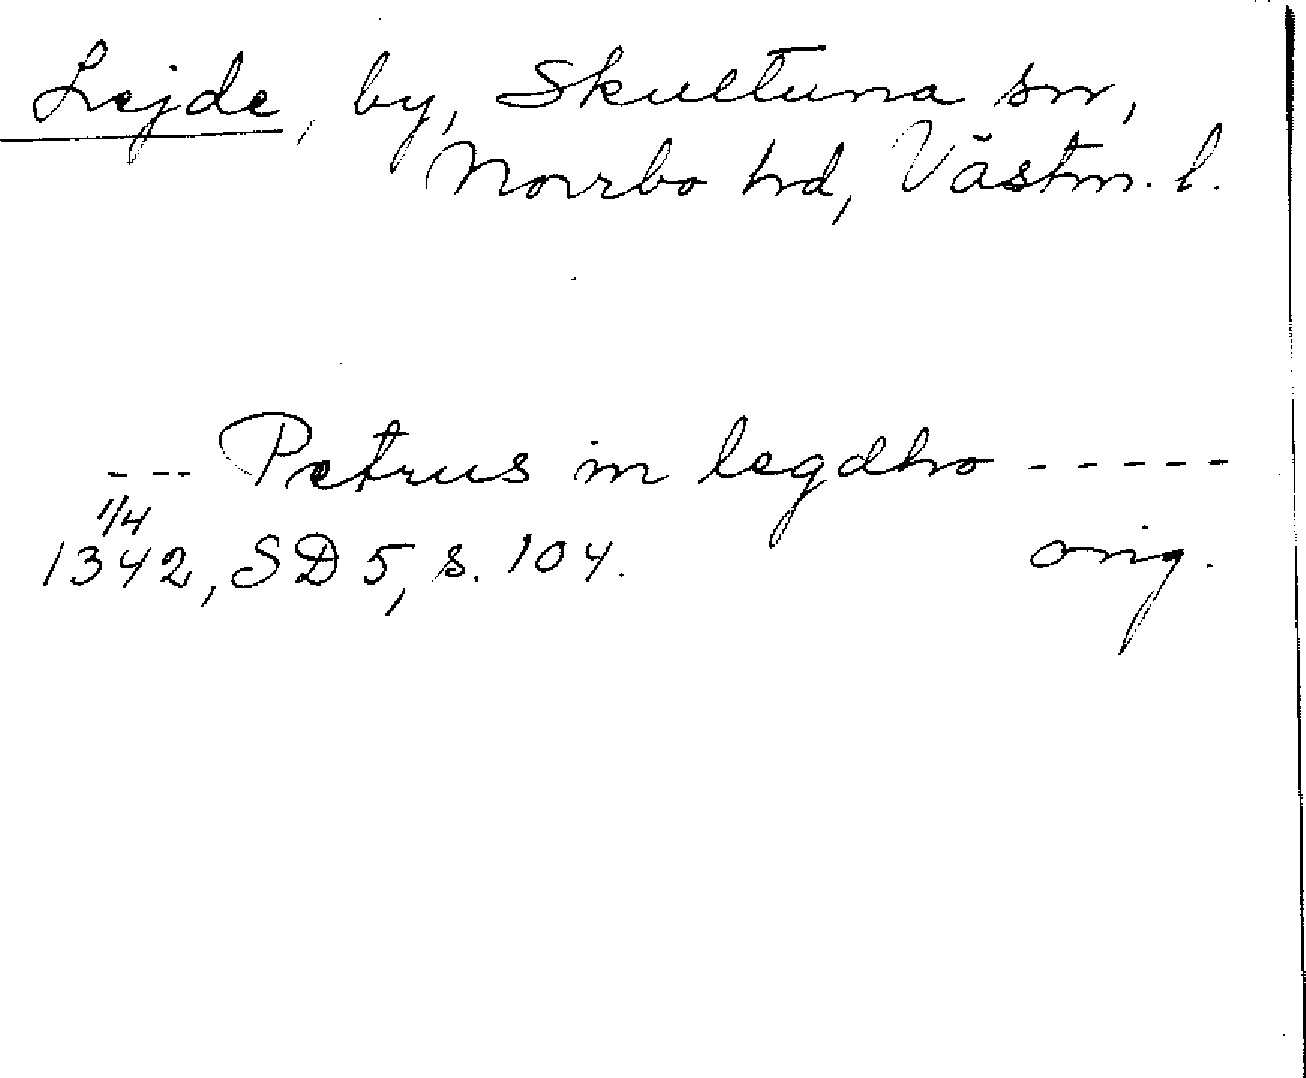 Lejde, by, Skultuna sn,
Norrbo hd, Västm. l.
--- Petrus in legdho -----
1/4
1342, SD 5, s. 104. orig.